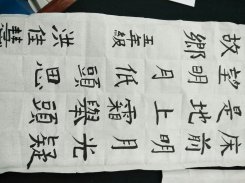 床前明月光疑
是地上霜舉頭
望明月低頭思
故鄉
五年級 洪佳慧